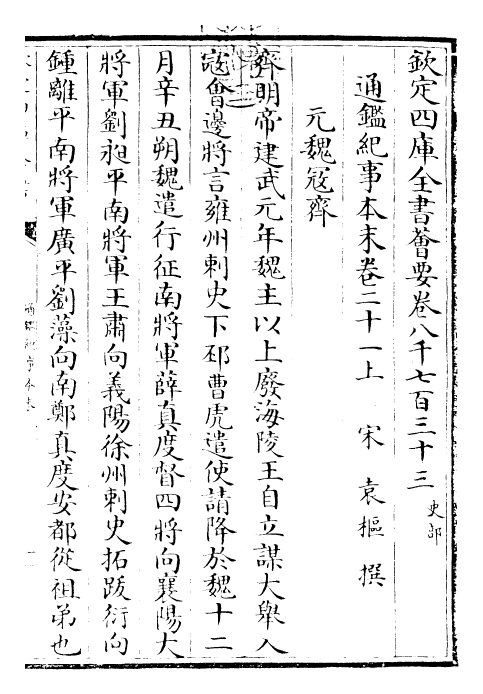 欽定四庫全書薈要卷八千七百三十三
史部
通鑑紀事本末卷二十一上　宋　袁樞　撰
元魏寇齊
齊明帝建武元年魏主以上廢海陵王自立謀大舉入
寇會邊將言雍州刺史下邳曹虎遣使請降於魏十二
月辛丑朔魏遣行征南將軍薛真度督四將向襄陽大
將軍劉昶平南將軍王肅向義陽徐州刺史拓跋衍向
鍾離平南將軍廣平劉藻向南鄭真度安都從祖弟也
通鑑紀事本末